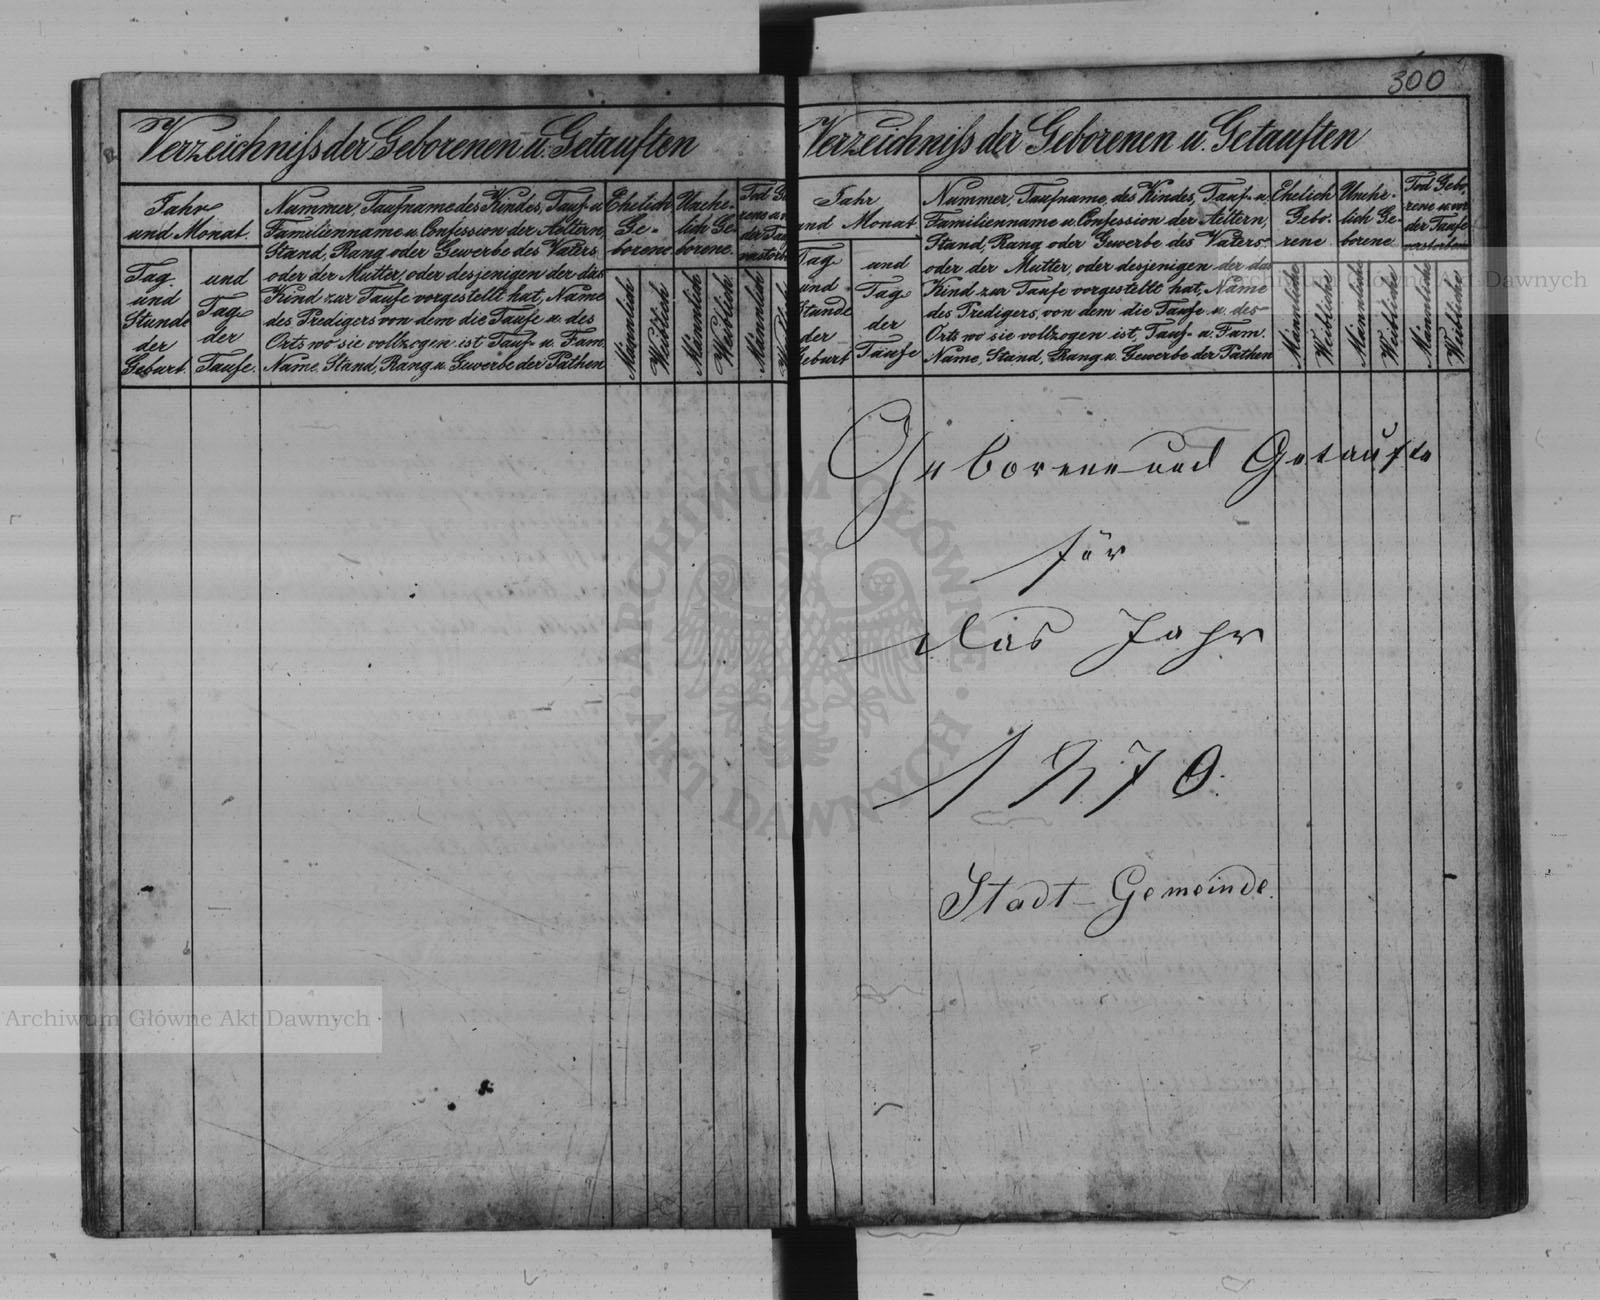 300
Verzeichniſs der Geborenen u. Getauften
Jahr
und Monat.
Tag
und
Stunde
der
Geburt.
und
Tag
der
Taufe.
Nummer, Taufname des Kindes, Tauf- u.
Familienname u. Confession der Aeltern,
Stand, Rang oder Gewerbe des Vaters
oder der Mutter, oder desjenigen der das
Kind zur Taufe vorgestellt hat, Name
des Predigers von dem die Taufe u. des
Orts wo sie vollzogen ist, Tauf- u. Fam.
Name, Stand, Rang u. Gewerbe der Pathen
Ehelich
Ge-
borene
Männlich
Weiblich
Unehe-
lich Ge-
borene.
Männlich
Weiblich
Tod Ge
rene u. v
der Tau
verstorb
Männlich
Verzeichniſs der Geborenen u. Getauften
Jahr
und Monat
Tag
und
Stunde
der
Geburt
und
Tag
der
Taufe
Nummer, Taufname des Kindes, Tauf- u.
Familienname u. Confession der Aeltern,
Stand, Rang oder Gewerbe des Vaters
oder der Mutter, oder desjenigen der das
Kind zur Taufe vorgestellt hat, Name
des Predigers, von dem die Taufe u. des
Orts wo sie vollzogen ist, Tauf- u. Fam.
Name, Stand, Rang u. Gewerbe der Pathen
Ehelich
Gebo-
rene
Männliche
Weibliche
Unehe-
lich Ge-
borene
Männliche
Weibliche
Tod Gebo-
rene u. vor
der Taufe
verstorbene
Männliche
Weibliche
Geborene und Getaufte
für
das Jahr
1870.
Stadt-Gemeinde.
ARCHIWUM GŁÓWNE · AKT DAWNYCH ·
Archiwum Główne Akt Dawnych
Archiwum Główne Akt Dawnych